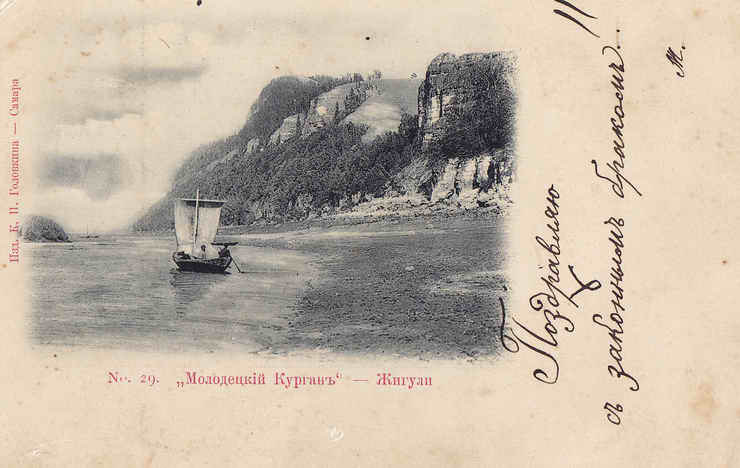 Изд. К. П. Головкина — Самара
No. 29. „Молодецкій Курганъ“ — Жигули
Поздравляю
съ законнымъ бракомъ...
М.